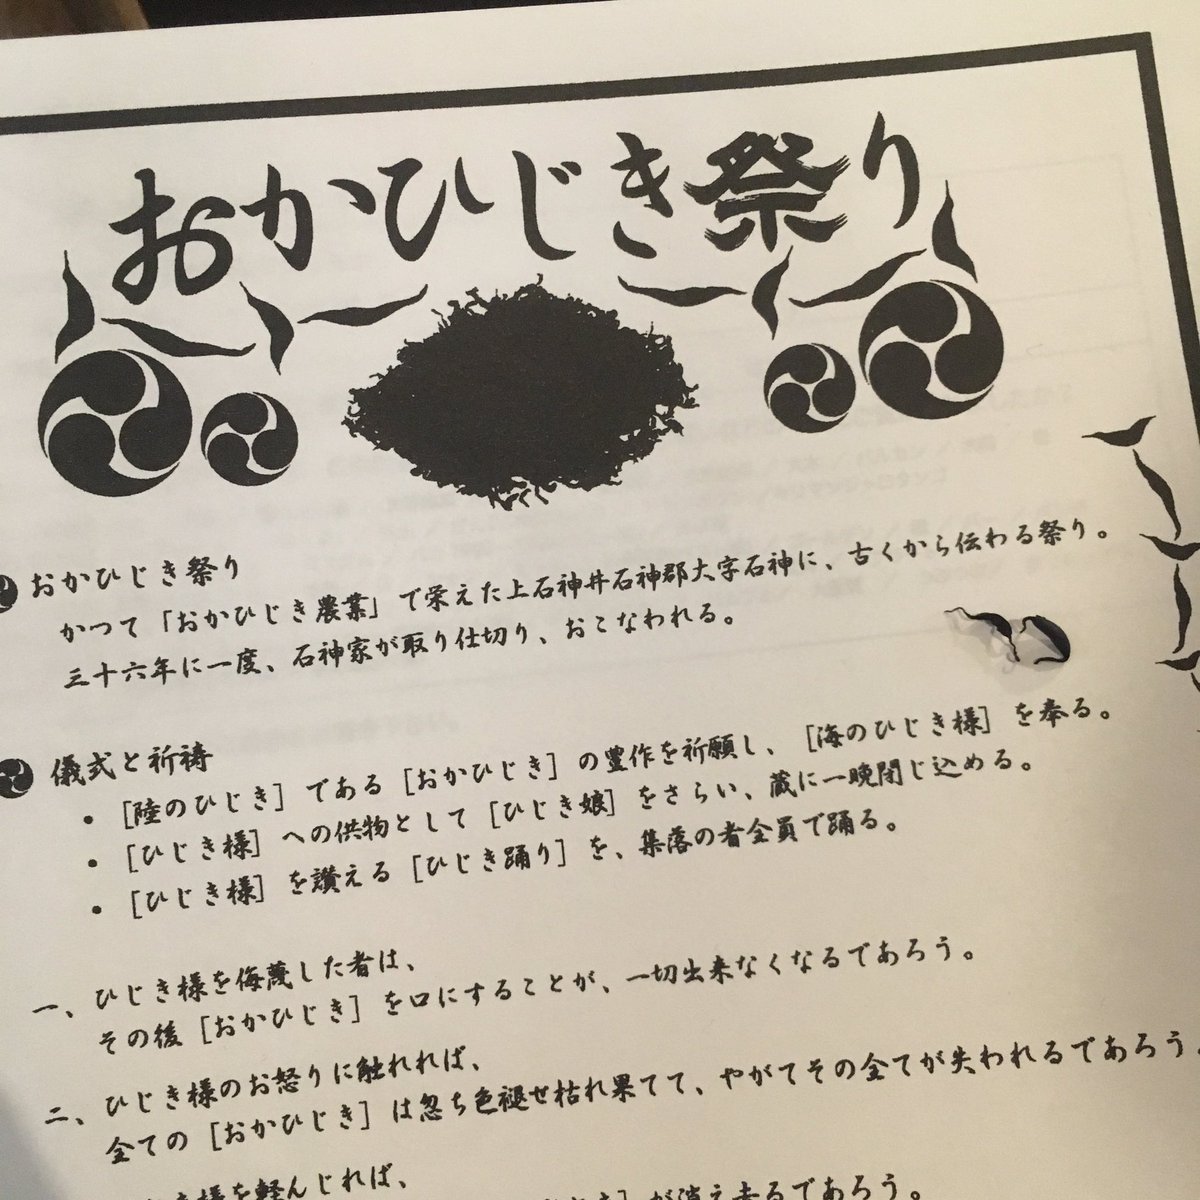 おかひじき祭り
おかひじき祭り
かつて「おかひじき農業」で栄えた上石神井石神郡大字石神に、古くから伝わる祭り。
三十六年に一度、石神家が取り仕切り、おこなわれる。
儀式と祈祷
・[陸のひじき]である[おかひじき]の豊作を祈願し、[海のひじき様]を奉る。
・[ひじき様]への供物として[ひじき娘]をさらい、蔵に一晩閉じ込める。
・[ひじき様]を讃える[ひじき踊り]を、集落の者全員で踊る。
一、ひじき様を侮蔑した者は、
その後[おかひじき]を口にすることが、一切出来なくなるであろう。
二、ひじき様のお怒りに触れれば、
全ての[おかひじき]は忽ち色褪せ枯れ果てて、やがてその全てが失われるであろう。
様を軽んじれば、
]が消え去るであろう。